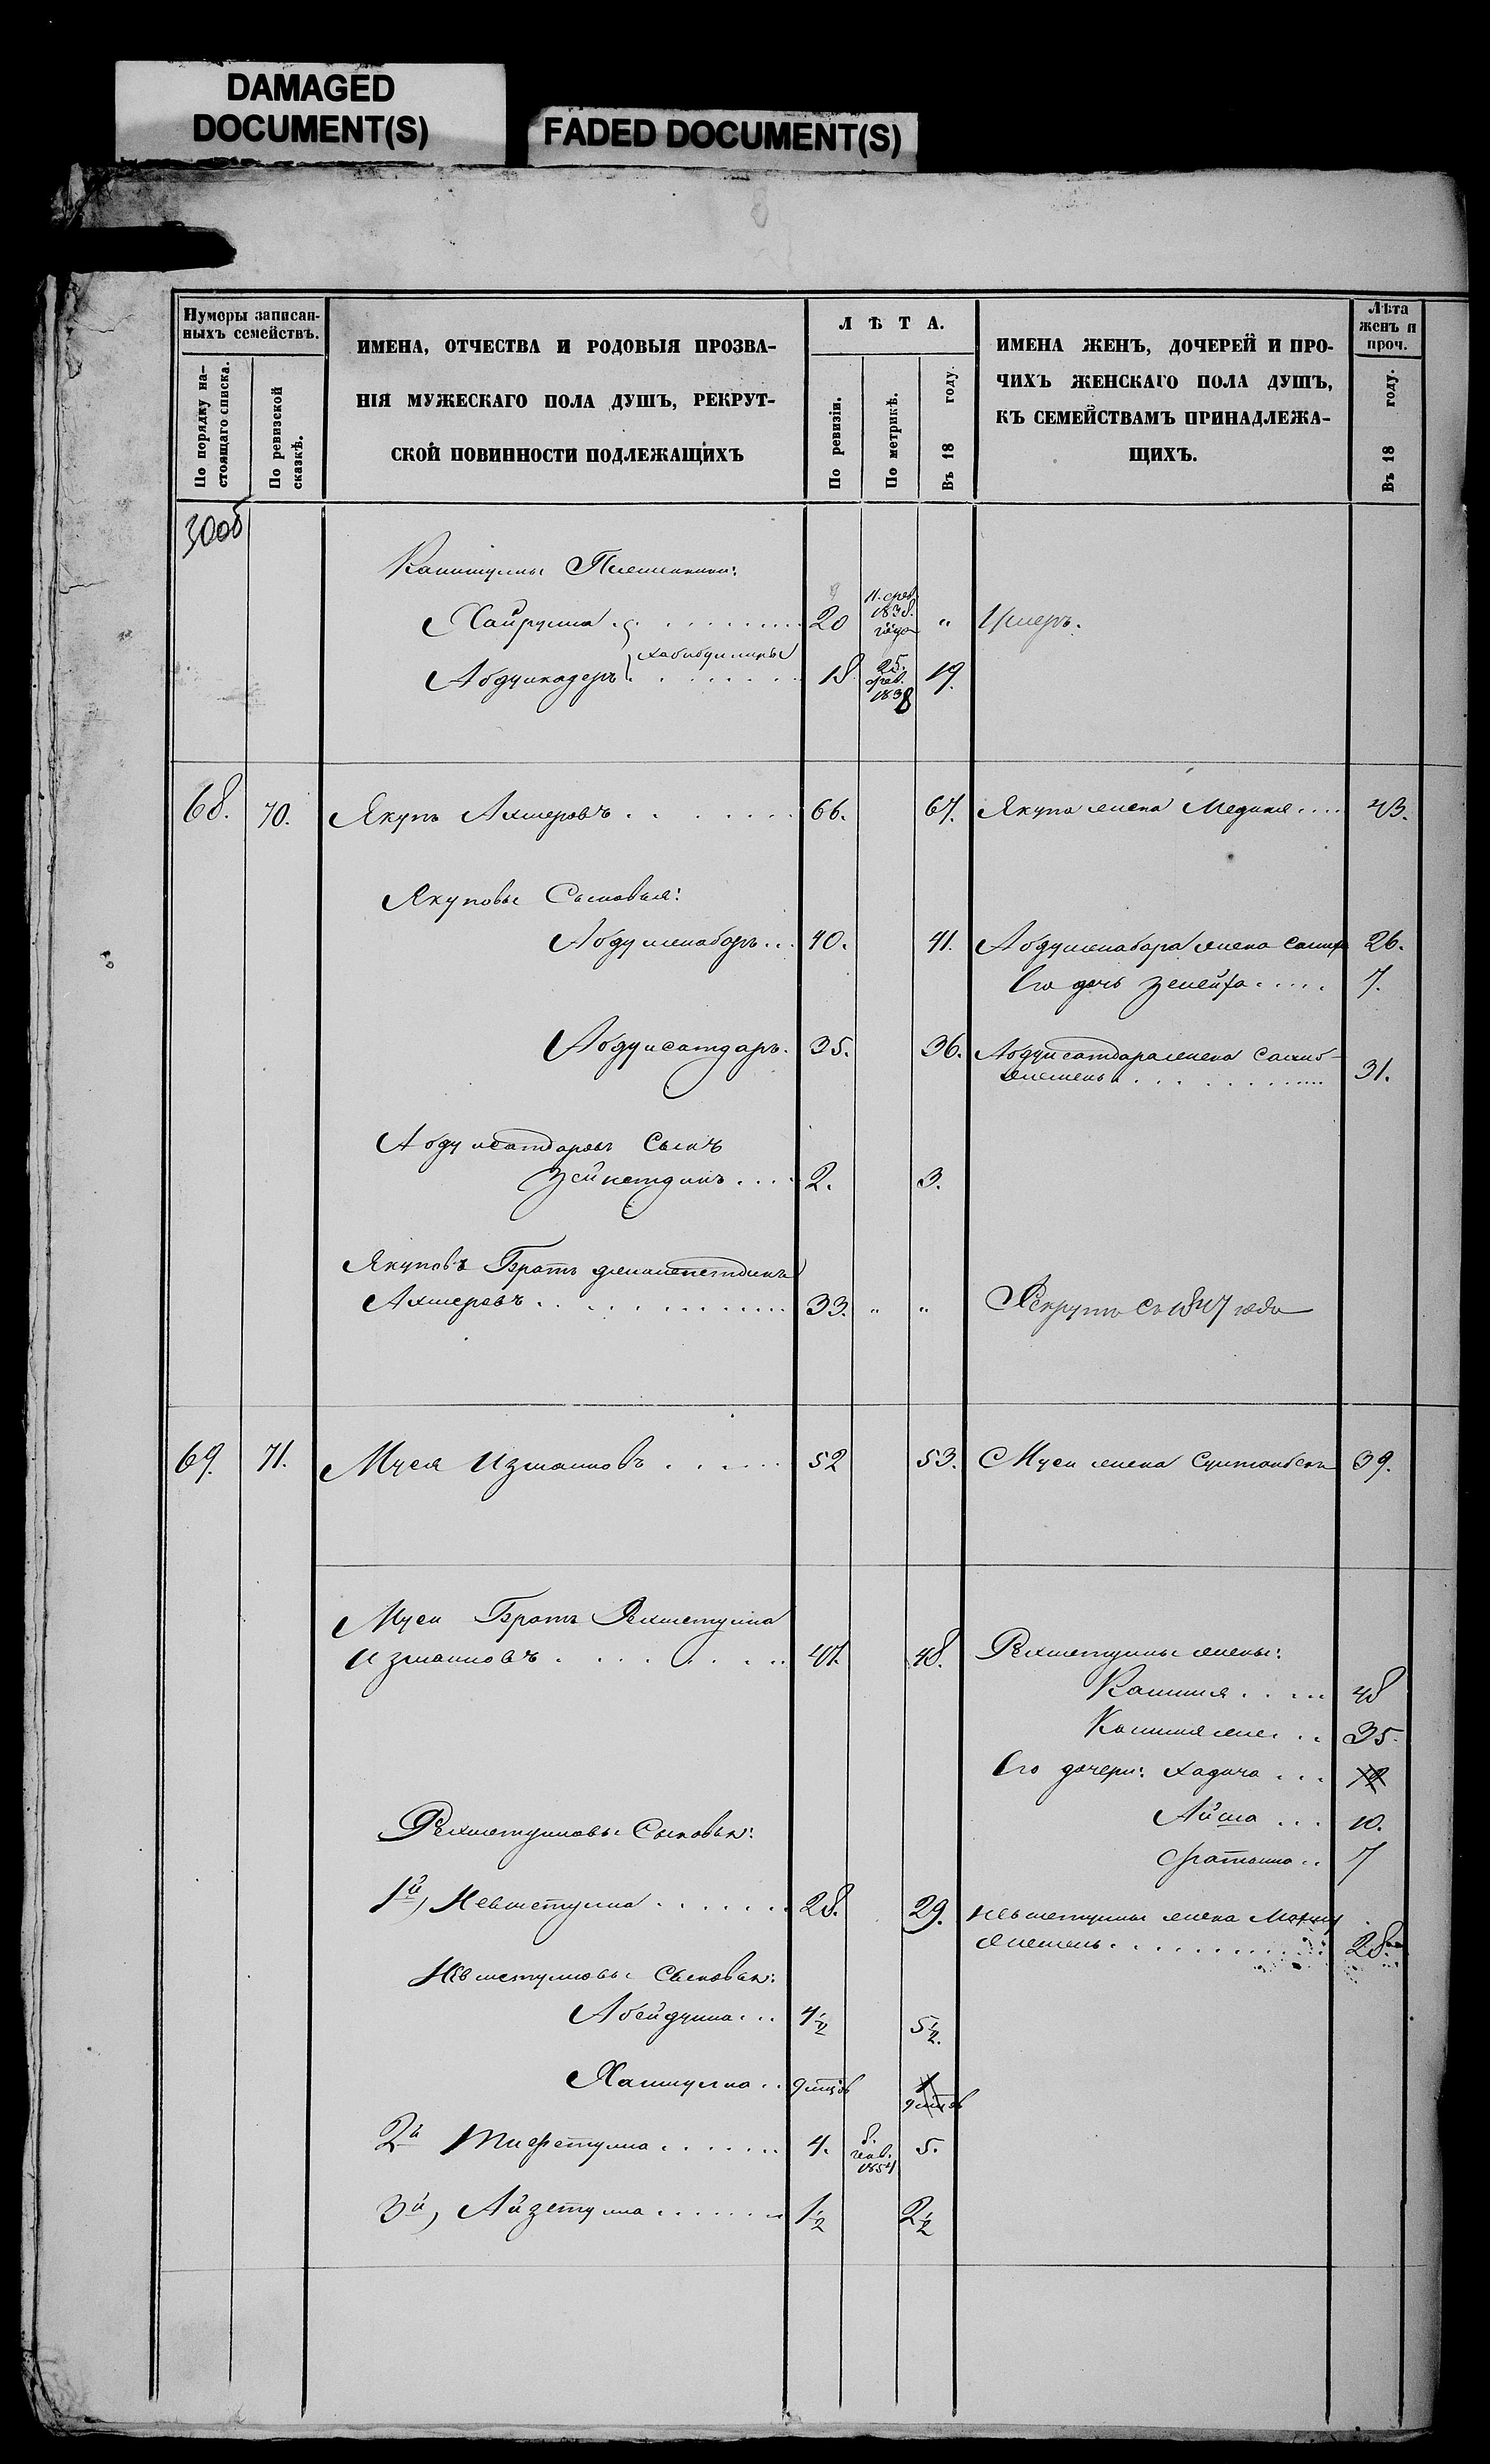 DAMAGED
DOCUMENT(S)
FADED DOCUMENT(S)
Нумеры записан-
ныхъ семействъ.
По порядку на-
стоящаго списка.
По ревизской
сказкѣ.
ИМЕНА, ОТЧЕСТВА И РОДОВЫЯ ПРОЗВА-
НІЯ МУЖЕСКАГО ПОЛА ДУШЪ, РЕКРУТ-
СКОЙ ПОВИННОСТИ ПОДЛЕЖАЩИХЪ
ЛѢТА.
По ревизіи.
По метрикѣ.
Въ 18 году.
ИМЕНА ЖЕНЪ, ДОЧЕРЕЙ И ПРО-
ЧИХЪ ЖЕНСКАГО ПОЛА ДУШЪ,
КЪ СЕМЕЙСТВАМЪ ПРИНАДЛЕЖА-
ЩИХЪ.
Лѣта
женъ и
проч.
Въ 18 году.
Хайрулла 20 11. фев. 1838. года " Умеръ.
Хабибулины
Абдулкадеръ 18 25. фев. 1838 19.
68. 70. Якупъ Ахмеровъ 66. 67. Якупа жена Медина 43.
Якуповы Сыновья:
Абдулженабаръ 40. 41. Абдулженабара жена 26.
Его дочь Зелейха 7.
Абдулсатдаръ. 35. 36. Абдулсатдара жена Сахиб-
жемень 31.
Абдулсатдаровъ Сынъ
Зейнетдинъ 2. 3.
Якуповъ Братъ
Ахмеровъ 33. " " Рекрутъ съ 1847 года
69. 71. Муся Измаиловъ 52 53. Муси жена 39.
Муси Братъ Рехметулла
Измаиловъ 47. 48. Рехметуллы жены:
48
35.
Его дочери: Хадича
Айша 10.
Фатыма 7
Рехметулловы Сыновья:
1й, Невметулла 28. 29. Невметуллы жена
жемень 28.
Невметулловы Сыновья:
Абейдулла 4 1/2 5 1/2.
9 мцов
2й 4. 8. 1854 5.
3й, Айзетулла 1 1/2 2 1/2